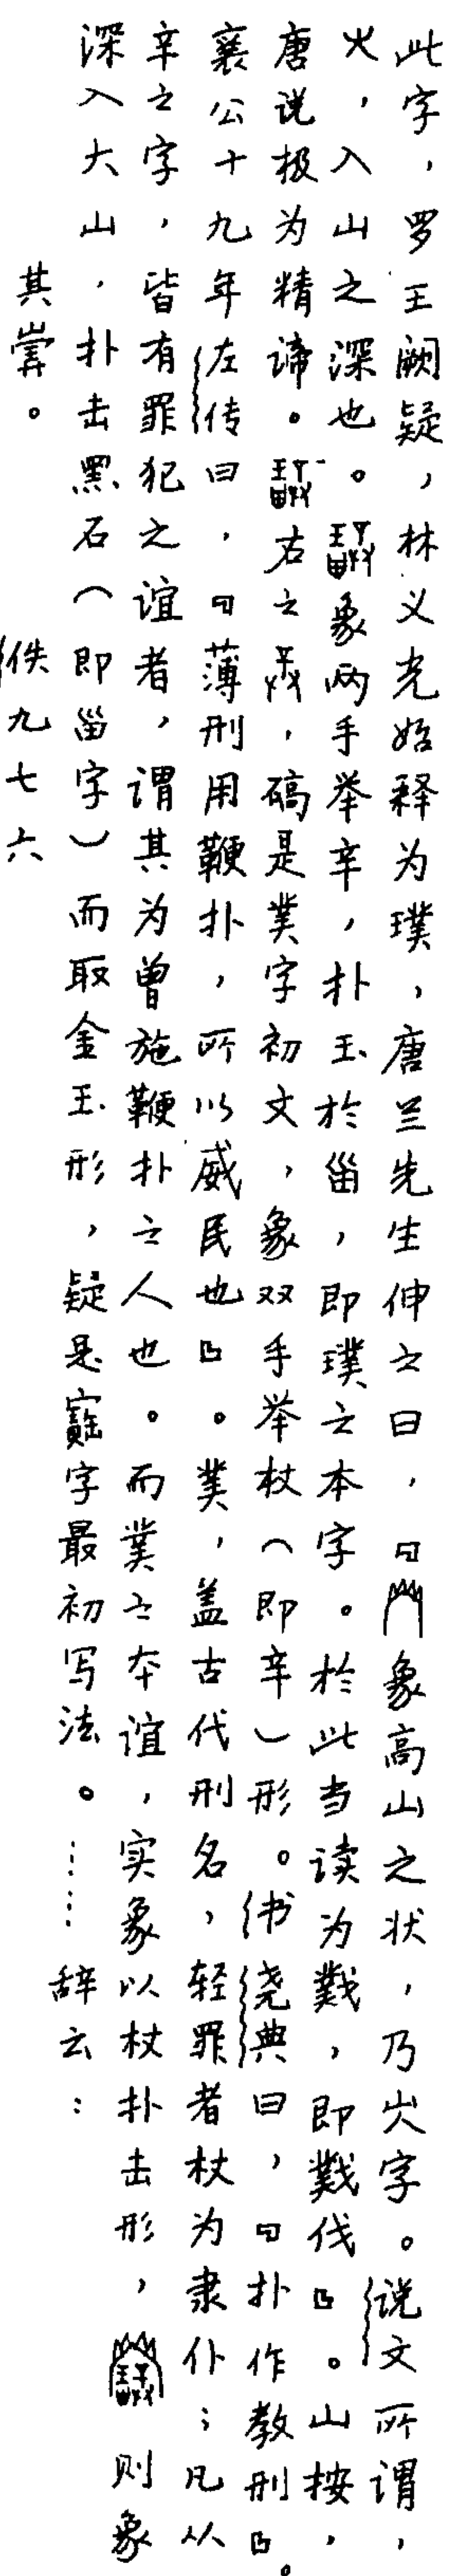 此字，罗王阙疑，林义光始释为璞，唐兰先生伸之曰，「象高山之状，乃屵字。说文所谓，
入山之深也。象两手举辛，扑玉於甾，即璞之本字。於此当读为戮，即戮伐」。山按，
唐说极为精谛。右之，碻是菐字初文，象双手举杖（即辛）形。书尧典曰，「扑作教刑」。
襄公十九年左传曰，「薄刑用鞭扑，所以威民也」。菐，盖古代刑名，轻罪者杖为隶仆；凡从
辛之字，皆有罪犯之谊者，谓其为曾施鞭扑之人也。而菐之本谊，实象以杖扑击形，则象
深入大山，扑击黑石（即甾字）而取金玉形，疑是寶字最初写法。……辞云：
其。 佚九七六